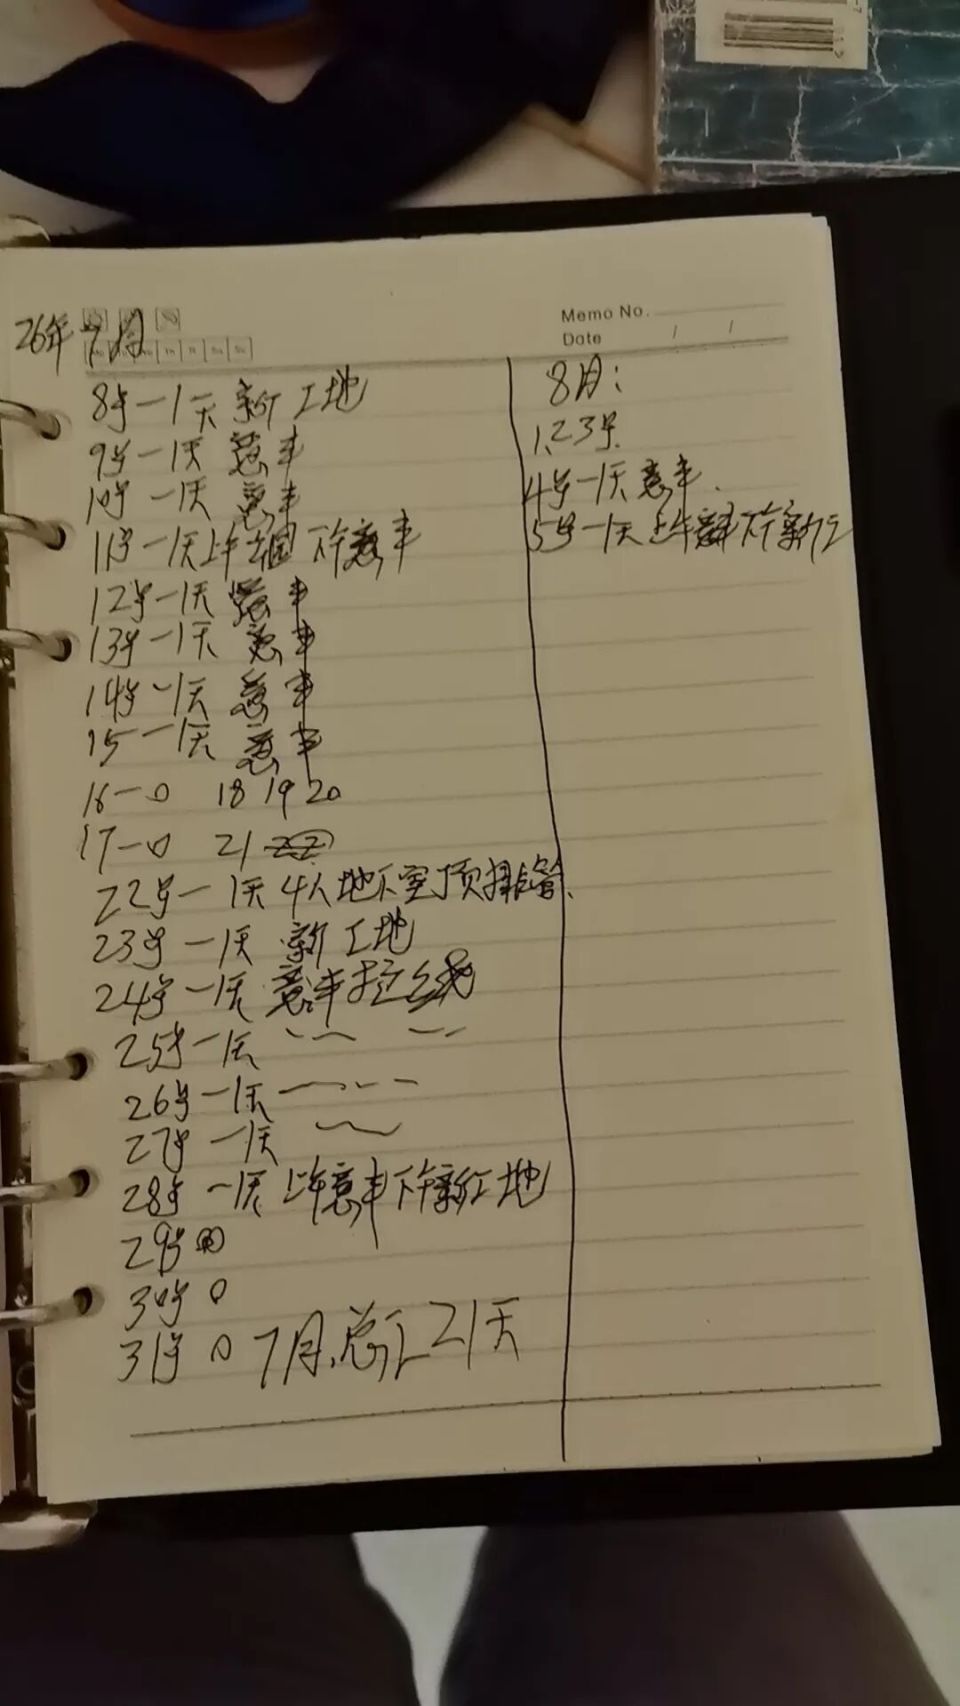 Memo No.
Date / /
26年7月
8号一1天 新工地
9号一1天 意丰
10号一1天 意丰
11号一1天上午 下午意丰
12号一1天 意丰
13号一1天 意丰
14号一1天 意丰
15一1天 意丰
16一0 18 19 20
17一0 21
22号一1天 4人地下室顶排管.
23号一1天 新工地
24号一1天 意丰拉线
25号一1天
26号一1天
27号一1天
28号一1天 上午意丰下午新工地
29号
30号 0
31号 0 7月.总工21天
8月:
1.2 3号.
4号一1天意丰.
5号一1天上午意丰下午新工